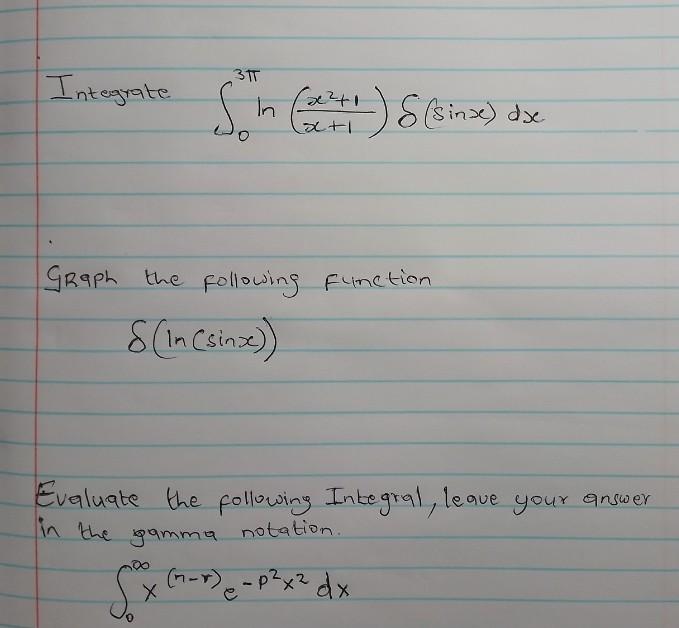 Integrate ∫₀^{3π} ln((x²+1)/(x+1)) δ(sinx) dx
Graph the following function
δ(ln(sinx))
Evaluate the following Integral, leave your answer
in the gamma notation.
∫₀^∞ x^{(n-r)} e^{-p²x²} dx